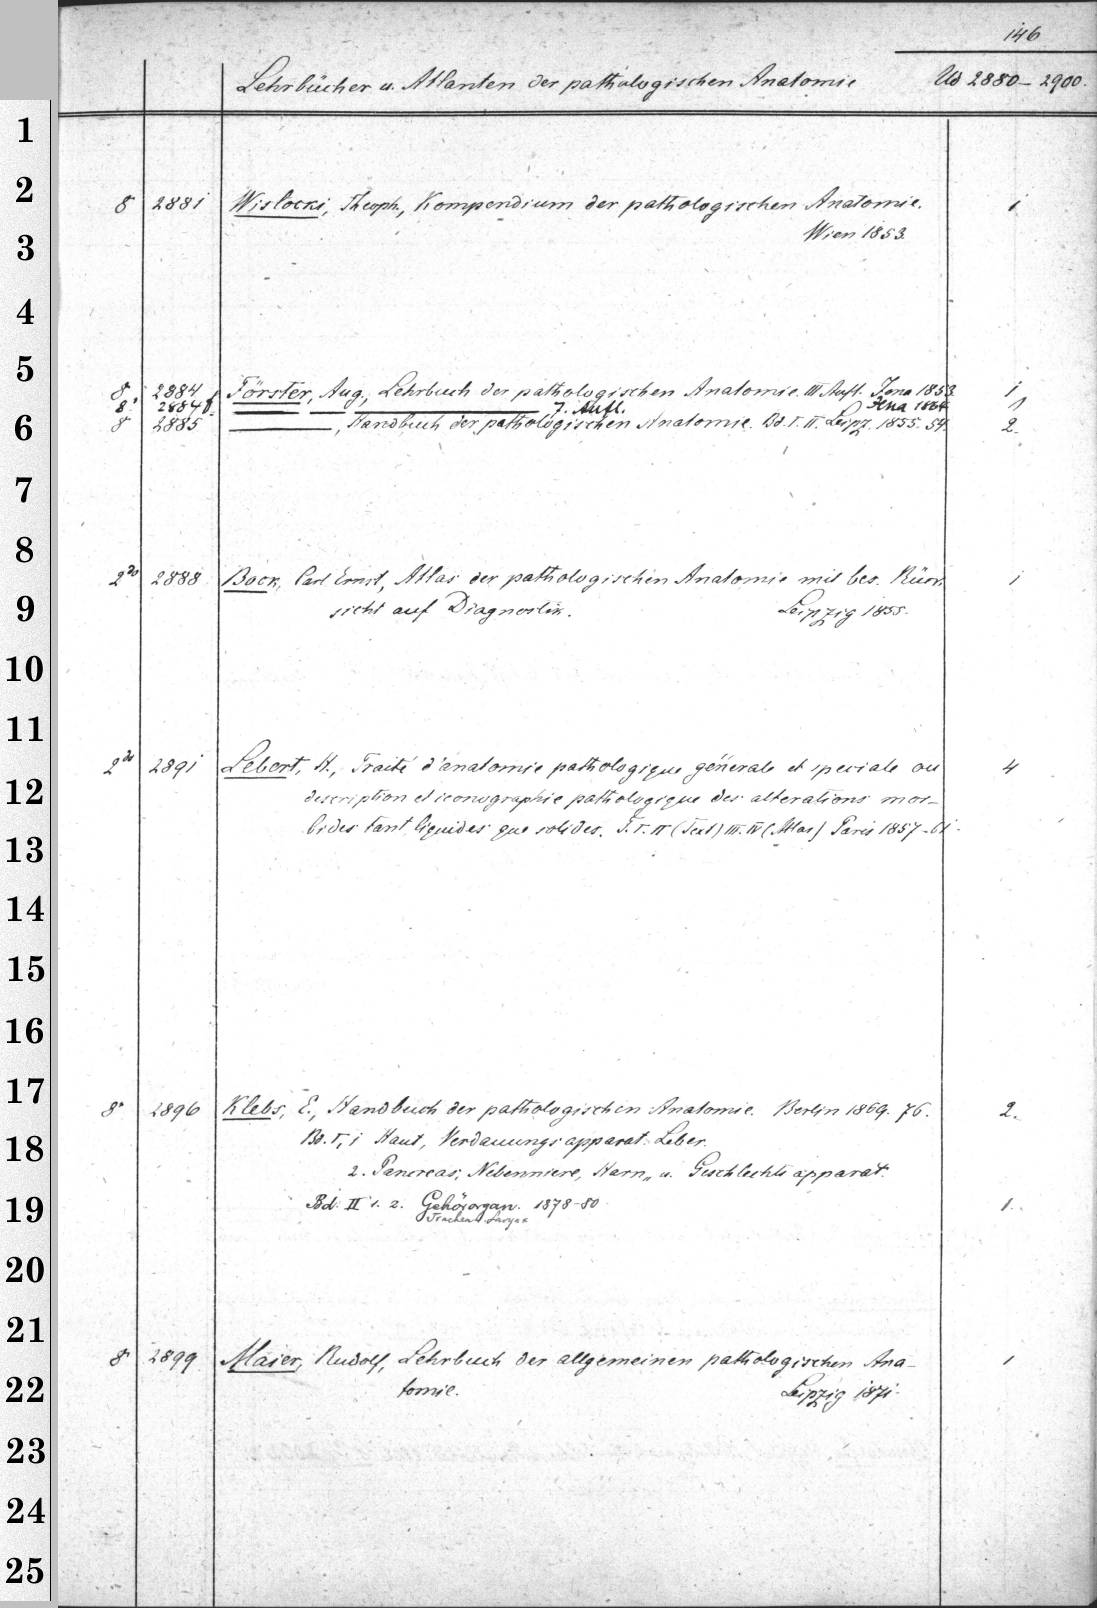 146
Lehrbücher u. Atlanten der pathologischen Anatomie Ud 2880–2900.
1
2
8 2881 Wislocki, Theoph., Kompendium der pathologischen Anatomie. 1
Wien 1853.
3
4
5
8. 2884 Förster, Aug., Lehrbuch der pathologischen Anatomie. III Aufl. Jena 1853. 1
8. 2884 f. 7. Aufl. Jena 1864 1
6
8 2885 , Handbuch der pathologischen Anatomie. Bd. I. II. Leipz. 1855. 54. 2.
7
8
2do 2888 Bock, Carl Ernst, Atlas der pathologischen Anatomie mit bes. Rück- 1
9
sicht auf Diagnostik. Leipzig 1855.
10
11
2do 2891 Lebert, H., Traité d'anatomie pathologique génerale et speciale ou 4
12
description et iconographie pathologique des alterations mor-
bides tant liquides que solides. T. I. II (Text) III. IV (Atlas) Paris 1857–61.
13
14
15
16
17
8° 2896 Klebs, E., Handbuch der pathologischen Anatomie. Berlin 1869. 76. 2.
Bd. I, 1 Haut, Verdauungsapparat. Leber.
18
2. Pancreas, Nebenniere, Harn- u. Geschlechtsapparat.
19
Bd. II 1. 2. Gehörorgan. 1878–80 1.
Trachea Larynx
20
21
8° 2899 Maier, Rudolf, Lehrbuch der allgemeinen pathologischen Ana- 1
22
tomie. Leipzig 1871.
23
24
25